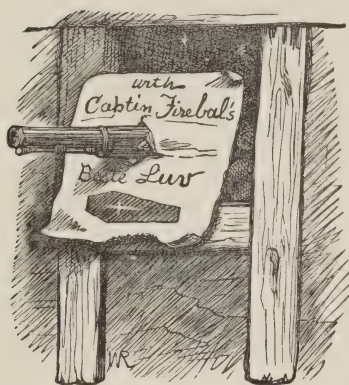 with
Captin Firebal's
Beste Luv
WR